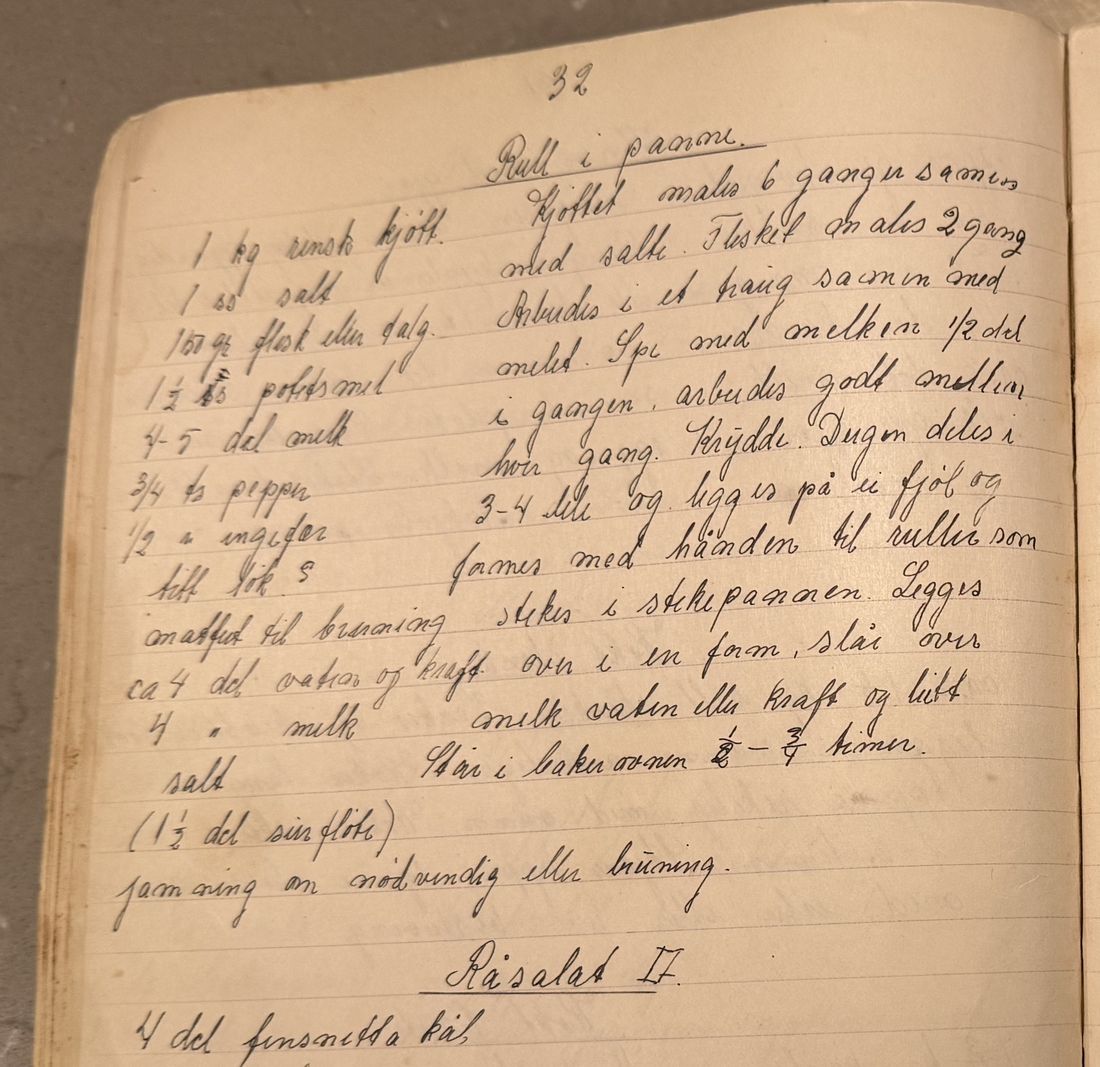 32
Rull i panne.
1 kg rensk kjött.
1 ss salt
150 gr flesk eller talg.
1 1/2 ss potetsmel
4-5 del melk
3/4 ts pepper
1/2 " ingefær
litt lök ?
matfett til bruning
ca 4 del vatn og kraft
4 " melk
salt
(1 1/2 del sur flöte)
jamning om nödvendig eller bruning.
Kjöttet males 6 ganger samen
med salte. Flesket males 2 gang
Arbeides i et traug samen med
melet. Spe med melken 1/2 del
i gangen, arbeides godt mellem
hver gang. Krydde. Deigen deles i
3-4 dele og legges på ei fjöl og
formes med hånden til ruller som
stekes i stekepannen. Legges
over i en form, slår over
melk vaten eller kraft og litt
Står i bakerovnen 1/2 - 3/4 timer.
Råsalat II.
4 del finsnetta kål